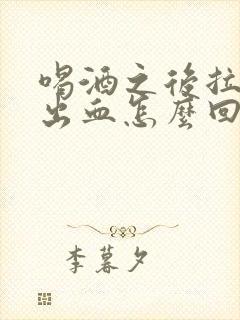 喝酒之後拉
出血怎麼回
李暮夕